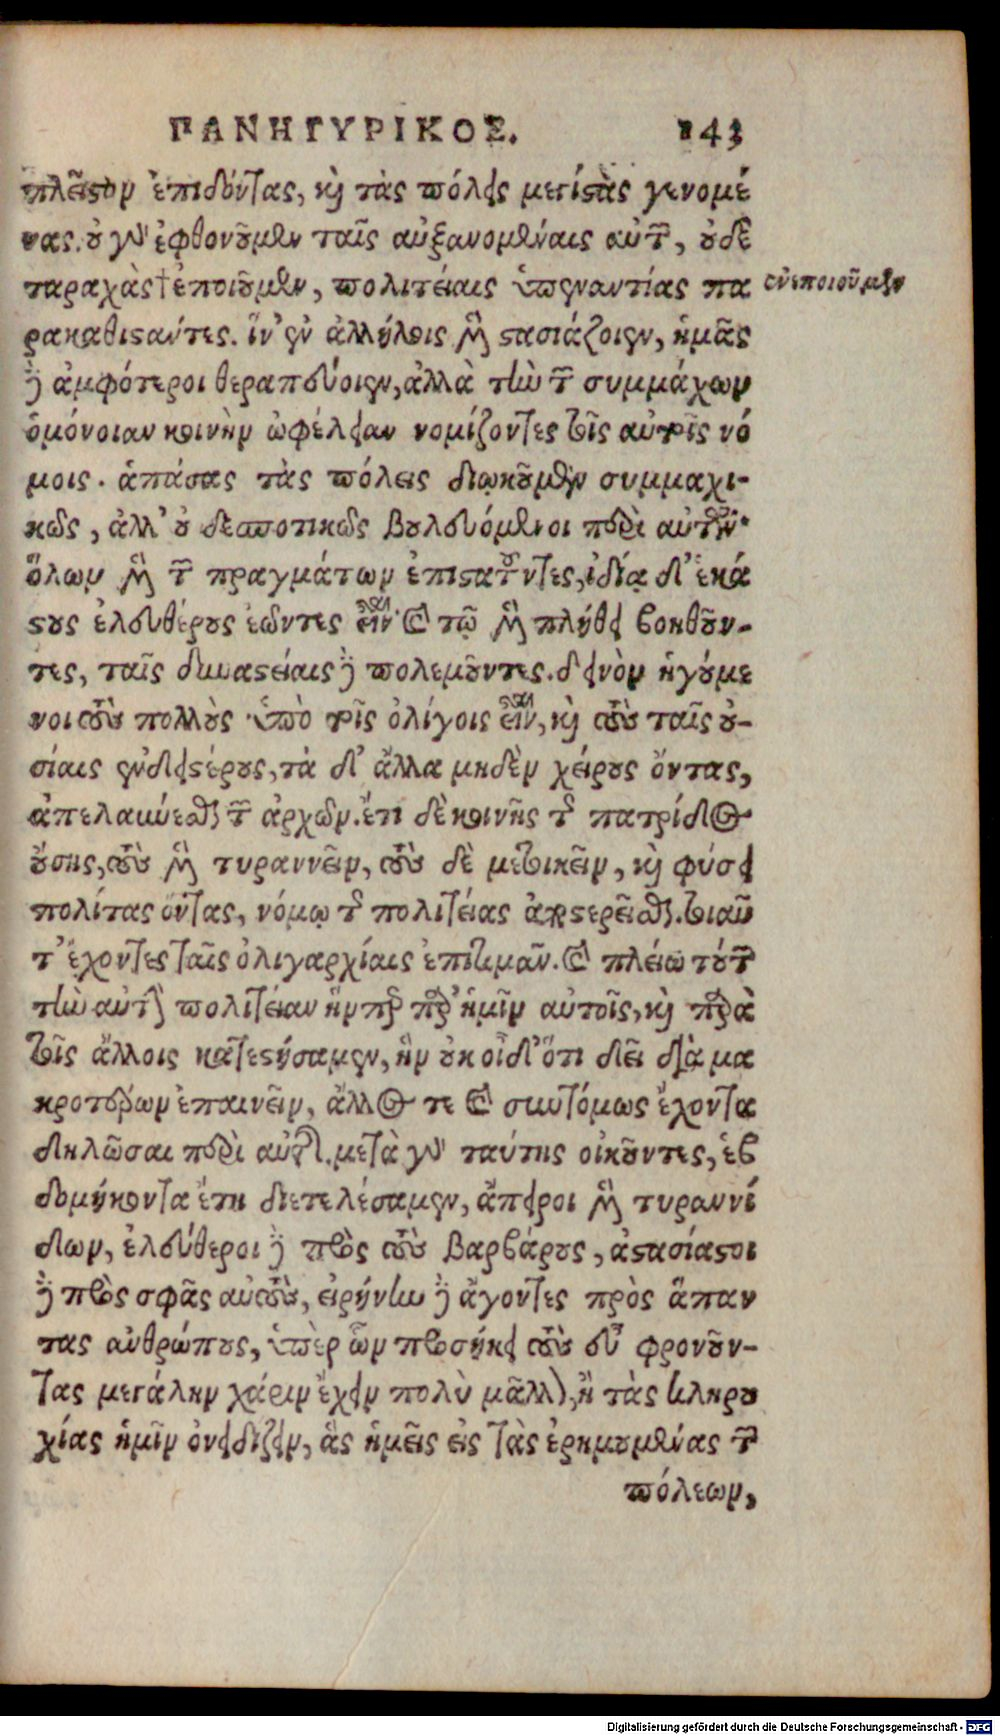 ΠΑΝΗΓΥΡΙΚΟΣ. 143
πλεῖστον ἐπιδόντας, καὶ τὰς πόλεις μεγίστας γενομέ
νας. οὐ γὰρ ἐφθονοῦμεν ταῖς αὐξανομέναις αὐτῶν, οὐδὲ
ταραχὰς† ἐποιοῦμεν, πολιτείαις ὑπεναντίας πα
ἐνεποιοῦμεν
ρακαθιστάντες. ἵν' ἐν ἀλλήλοις μὲν στασιάζοιεν, ἡμᾶς
δὲ ἀμφότεροι θεραπεύοιεν, ἀλλὰ τὴν τῶν συμμάχων
ὁμόνοιαν κοινὴν ὠφέλειαν νομίζοντες τοῖς αὐτοῖς νό
μοις. ἁπάσας τὰς πόλεις διῳκοῦμεν συμμαχι-
κῶς, ἀλλ' οὐ δεσποτικῶς βουλευόμενοι περὶ αὐτῶν·
ὅλων μὲν τῶν πραγμάτων ἐπιστατοῦντες, ἰδίᾳ δ' ἑκά
στους ἐλευθέρους ἐῶντες εἶναι· καὶ τῷ μὲν πλήθει βοηθοῦν-
τες, ταῖς δυναστείαις δὲ πολεμοῦντες. δεινὸν ἡγούμε
νοι τοὺς πολλοὺς ὑπὸ τοῖς ὀλίγοις εἶναι, καὶ τοὺς ταῖς οὐ-
σίαις ἐνδεεστέρους, τὰ δ' ἄλλα μηδὲν χείρους ὄντας,
ἀπελαύνεσθαι τῶν ἀρχῶν. ἔτι δὲ κοινῆς τῆς πατρίδος
οὔσης, τοὺς μὲν τυραννεῖν, τοὺς δὲ μετοικεῖν, καὶ φύσει
πολίτας ὄντας, νόμῳ τῆς πολιτείας ἀποστερεῖσθαι. τοιαῦ
τ' ἔχοντες ταῖς ὀλιγαρχίαις ἐπιτιμᾶν. καὶ πλείω τούτων
τὴν αὐτὴν πολιτείαν ἥνπερ παρ' ἡμῖν αὐτοῖς, καὶ παρὰ
τοῖς ἄλλοις κατεστήσαμεν, ἣν οὐκ οἶδ' ὅτι δεῖ διὰ μα
κροτέρων ἐπαινεῖν, ἄλλος τε καὶ συντόμως ἔχοντα
δηλῶσαι περὶ αὐτῆς. μετὰ γὰρ ταύτης οἰκοῦντες, ἑβ
δομήκοντα ἔτη διετελέσαμεν, ἄπειροι μὲν τυραννί
δων, ἐλεύθεροι δὲ πρὸς τοὺς βαρβάρους, ἀστασίαστοι
δὲ πρὸς σφᾶς αὐτοὺς, εἰρήνην δὲ ἄγοντες πρὸς ἅπαν
τας ἀνθρώπους, ὑπὲρ ὧν προσήκει τοὺς εὖ φρονοῦν-
τας μεγάλην χάριν ἔχειν πολὺ μᾶλλον, ἢ τὰς κληρου
χίας ἡμῖν ὀνειδίζειν, ἃς ἡμεῖς εἰς τὰς ἐρημουμένας τῶν
πόλεων,
Digitalisierung gefördert durch die Deutsche Forschungsgemeinschaft - DFG